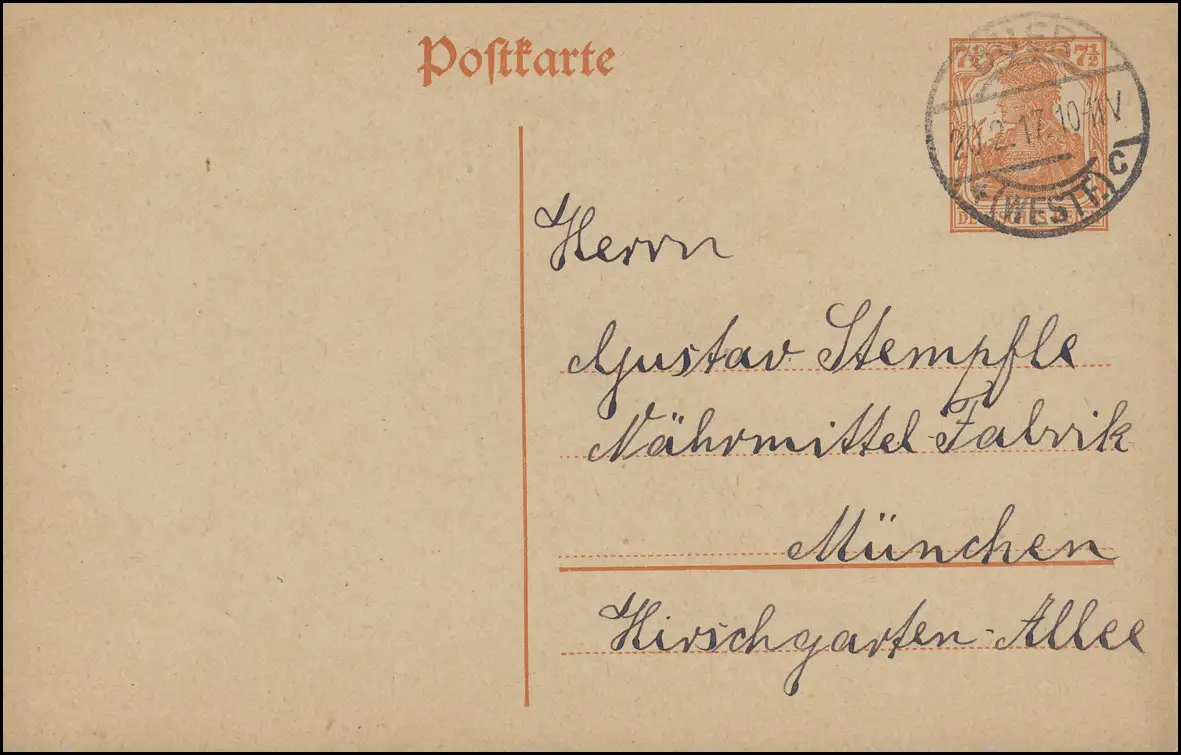 Postkarte
7½ 7½
2.17. 10-11V
* (WESTF.) C
Herrn
Gustav Stempfle
Nährmittel-Fabrik
München
Hirschgarten-Allee